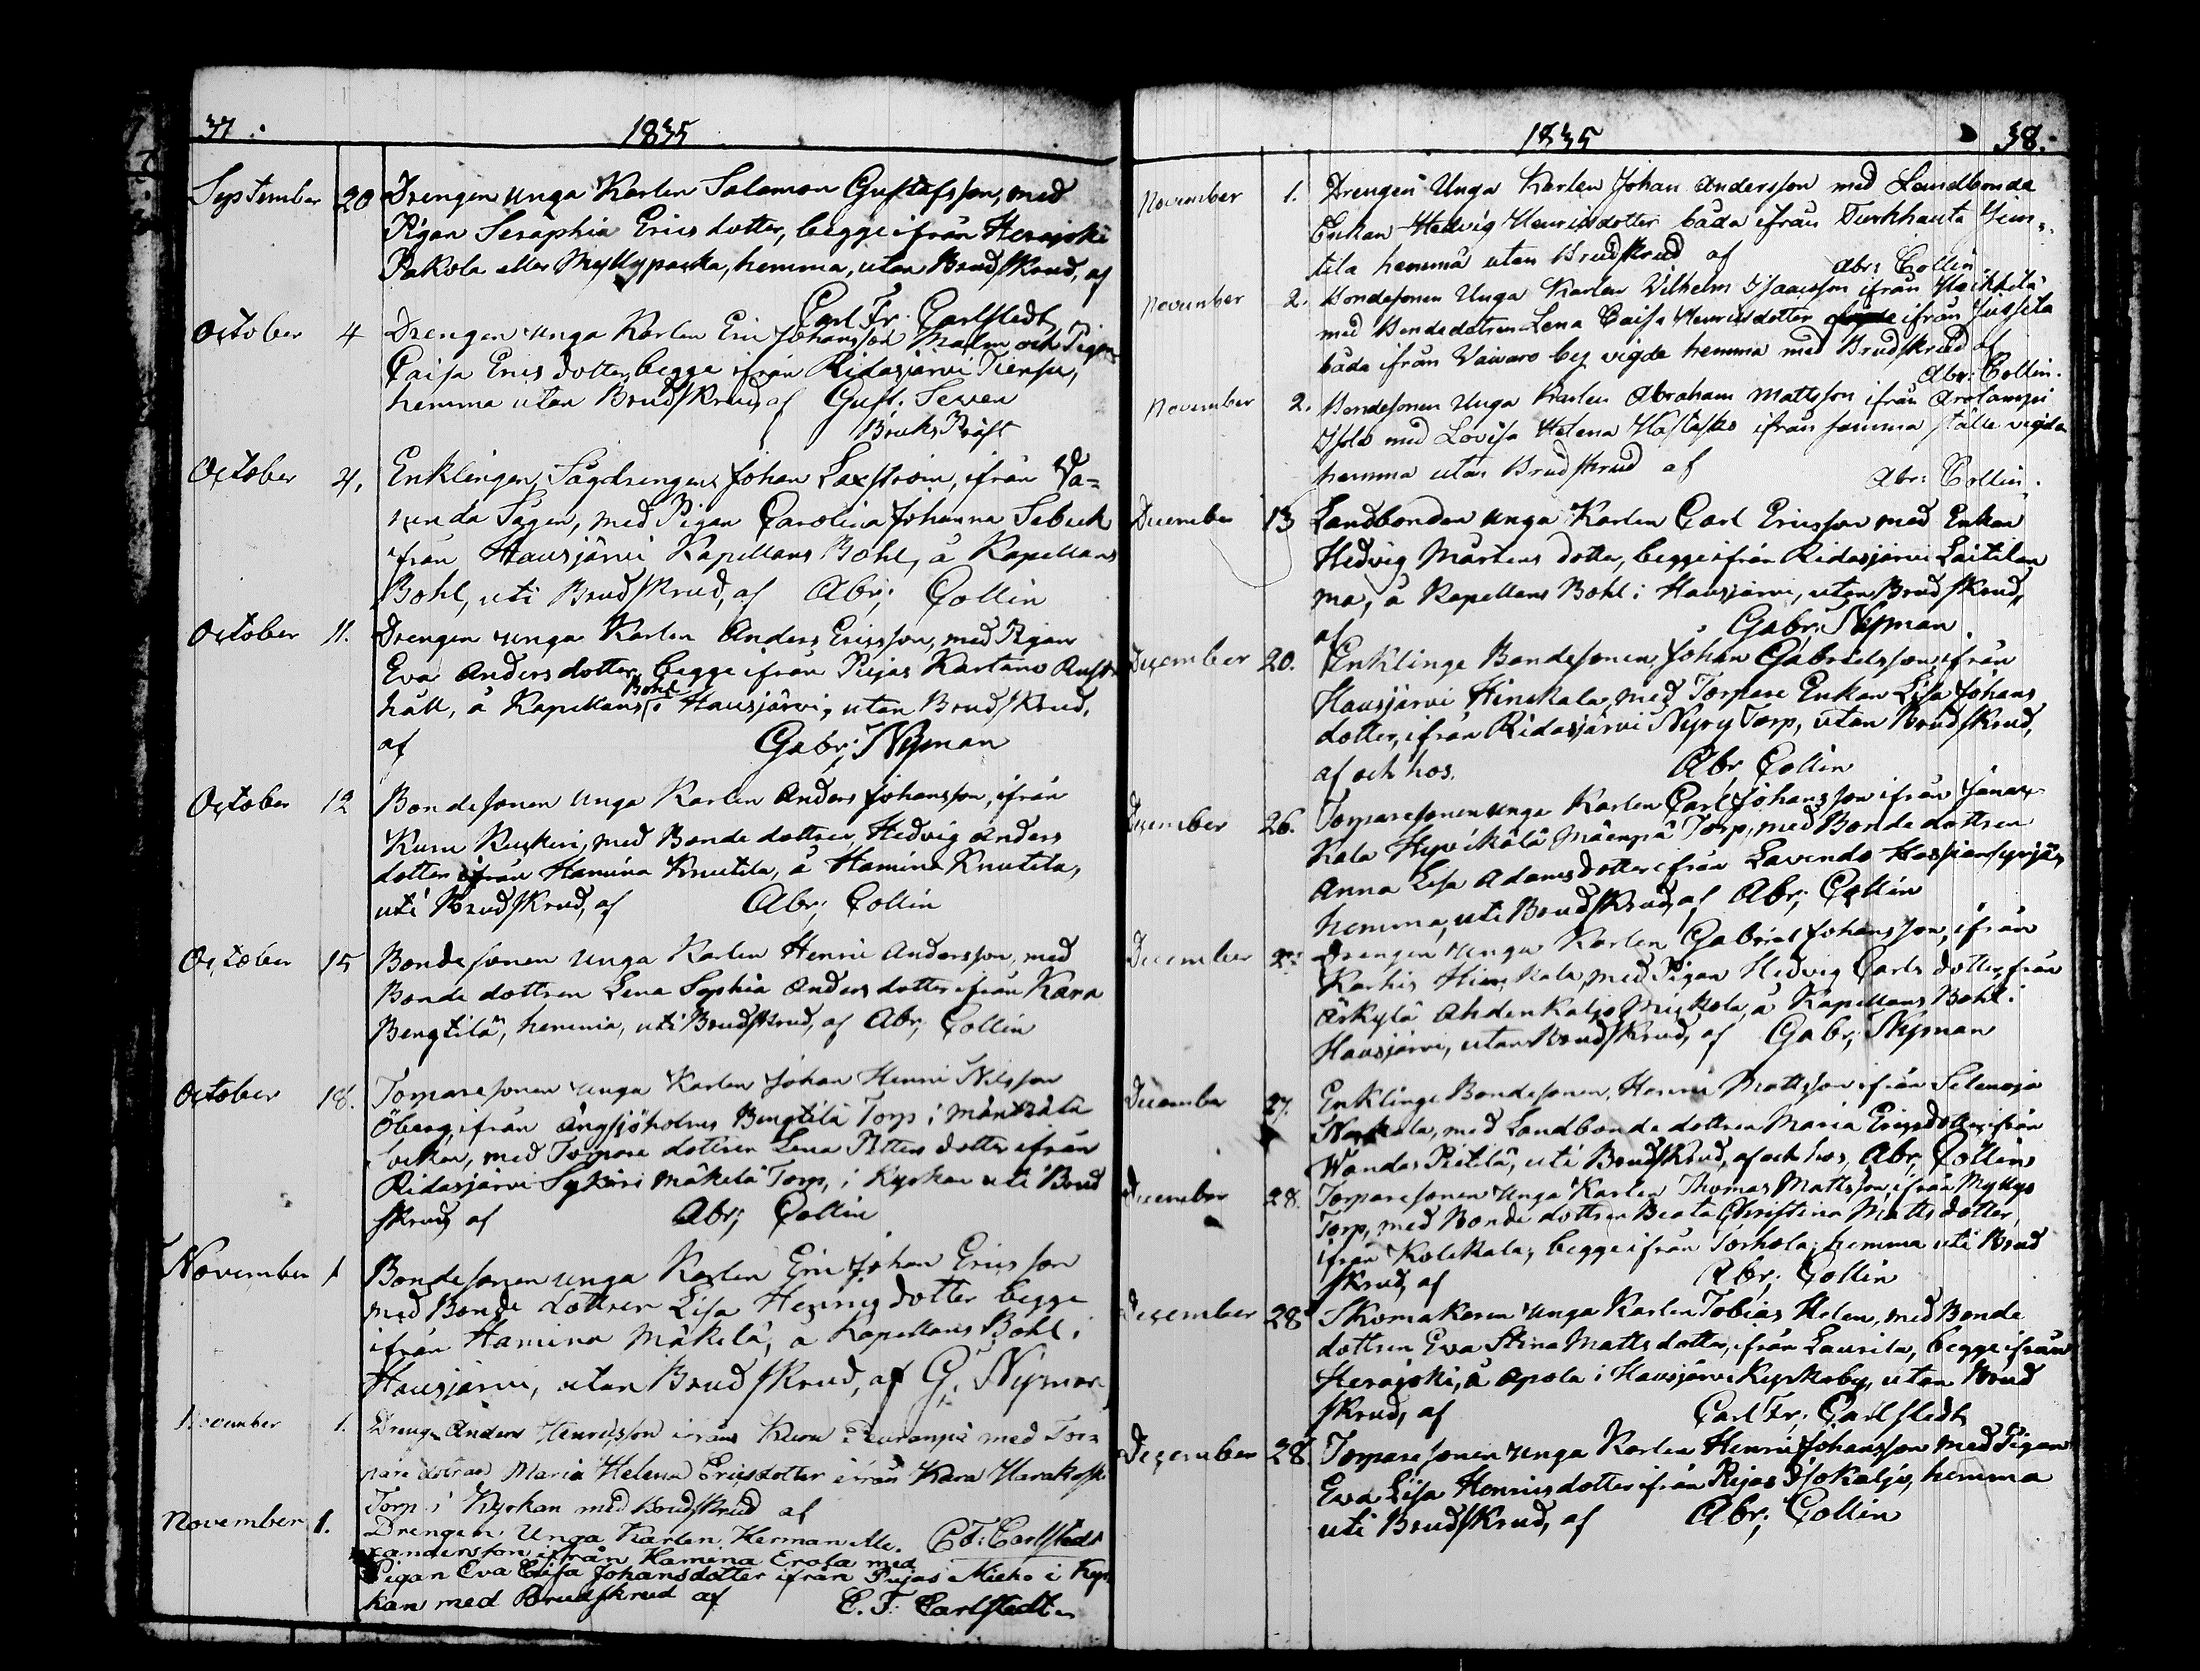 37.
1835
September 20 Drengen unga Karlen Salomon Gustafsson, med
Pigan Seraphia Ericsdotter, begge ifrån Herajoki
Pakola eller Myllyparka, hemma, utan Brudskrud, af
Carl Fr. Carlstedt
October 4 Drengen unga Karlen Eric Johansson Malm och Pigan
Caisa Ericsdotter, begge ifrån Ridasjärvi Tiensu,
hemma utan Brudskrud, af Gust. Seven
Bruks Präst
October 4. Enklingen, Sågdrengen Johan Laxström, ifrån
Sågen, med Pigan Carolina Johanna Sebuck
ifrån Hausjärvi Kapellans Bohl, å Kapellans
Bohl, uti Brudskrud, af Abr; Collin
October 11. Drengen unga Karlen Anders Ericsson, med Pigan
Eva Andersdotter, begge ifrån Piejas Kartano Rust
håll, å Kapellans Bohl i Hausjärvi, utan Brudskrud,
af Gabr; Nyman
October 12 Bondesonen unga Karlen Anders Johansson, ifrån
Kuru Keskeri, med Bonde dottren Hedvig Anders
dotter ifrån Hamina Knutila, å Hamina Knutila,
uti Brudskrud, af Abr; Collin
October 15 Bondesonen unga Karlen Henric Andersson, med
Bonde dottren Lena Sophia Andersdotter ifrån Kara
Bengtilä, hemma, uti Brudskrud, af Abr; Collin
October 18. Torparesonen unga Karlen Johan Henric Nilsson
Öberg, ifrån Ängsjöholms Bengtilä Torp i Mäntsälä
Socken, med Torpare dottren Lena Petters dotter ifrån
Ridasjärvi Sykäri Mäkelä Torp, i Kyrkan uti Brud
skrud, af Abr; Collin
November 1 Bondesonen unga Karlen Eric Johan Ericsson
med Bonde dottren Lisa Henricsdotter begge
ifrån Hamina Mäkelä, a Kapellans Bohl i
Hausjärvi, utan Brudskrud, af G; Nyman
November 1. Dreng Anders Henricsson ifrån Kuru med Tor
pare dottren Maria Helena Ericsdotter ifrån Kara Harakoski
Torp i Kyrkan med Brudskrud af
C F: Carlstedt
November 1. Drengen Unga Karlen Herman Ale.
xandersson ifrån Hamina Erola med
Pigan Eva Lisa Johansdotter ifrån Piejas Mieho i Kyr
kan med Brudskrud af C. F. Carlstedt
1835
38.
November 1. Drengen Unga Karlen Johan Andersson med Landbonde
Enkan Hedvig Henricsdotter båda ifrån Turkhauta Sim
tila hemma utan Brudskrud af Abr: Collin
November 2. Bondesonen Unga Karlen Vilhelm Isaacsson ifrån Heikkilä
med Bondedottren Lena Caisa Henricsdotter ifrån Jussila
båda ifrån Vaiwaro by vigde hemma med Brudskrud af
Abr: Collin.
November 2. Bondesonen Unga Karlen Abraham Mattsson ifrån Arolampi
Isola med Lovisa Helena ifrån samma ställe vigde
hemma utan Brudskrud af Abr: Collin.
December 13 Landbonden unga Karlen Carl Ericsson med Enkan
Hedvig Mårtens dotter, begge ifrån Ridasjärvi Laitilan
ma, å Kapellans Bohl i Hausjärvi, utan Brudskrud,
af Gabr; Nyman
December 20. Enklinge Bondesonen, Johan Gabrielsson, ifrån
Hausjärvi Hinskala, med Torpare Enkan Lisa Johans
dotter, ifrån Ridasjärvi Nyry Torp, utan Brudskrud,
af och hos. Abr Collin
December 26. Torparesonen unga Karlen Carl Johansson ifrån Janak
kala Hyvikälä Mäenpä Torp, med Bonde dottren
Anna Lisa Adamsdotter ifrån Lavendo
hemma, uti Brudskrud, af Abr; Collin
December 27 Drengen unga Karlen Gabriel Johansson, ifrån
Karhis Hinskala, med Pigan Hedvig Carls dotter, ifrån
Ärkylä Ahdenkaljo Miskola, å Kapellans Bohl i
Hausjärvi, utan Brudskrud, af Gabr; Nyman
December 27. Enklinge Bondesonen, Henric Mattsson ifrån Selenoja
med Landbonde dottren Maria Ericsdotter, ifrån
Wandas Pietilä, uti Brudskrud, af och hos, Abr; Collin
December 28. Torparesonen Unga Karlen Thomas Mattsson, ifrån Myllys
Torp, med Bonde dottren Beata Christina Mattsdotter,
ifrån Kolekala, begge ifrån Torhola, hemma uti Brud
skrud, af Abr; Collin
December 28 Skomakaren unga Karlen Tobias Helen, med Bonde
dottren Eva Stina Matts dotter, ifrån Laurila, begge ifrån
Herajoki, å Apola i Hausjärvi Kyrkoby, utan Brud
skrud, af Carl Fr. Carlstedt
December 28. Torparesonen unga Karlen Henric Johansson med Pigan
Eva Lisa Henricsdotter ifrån Piejas Isokaljo, hemma
uti Brudskrud, af Abr; Collin